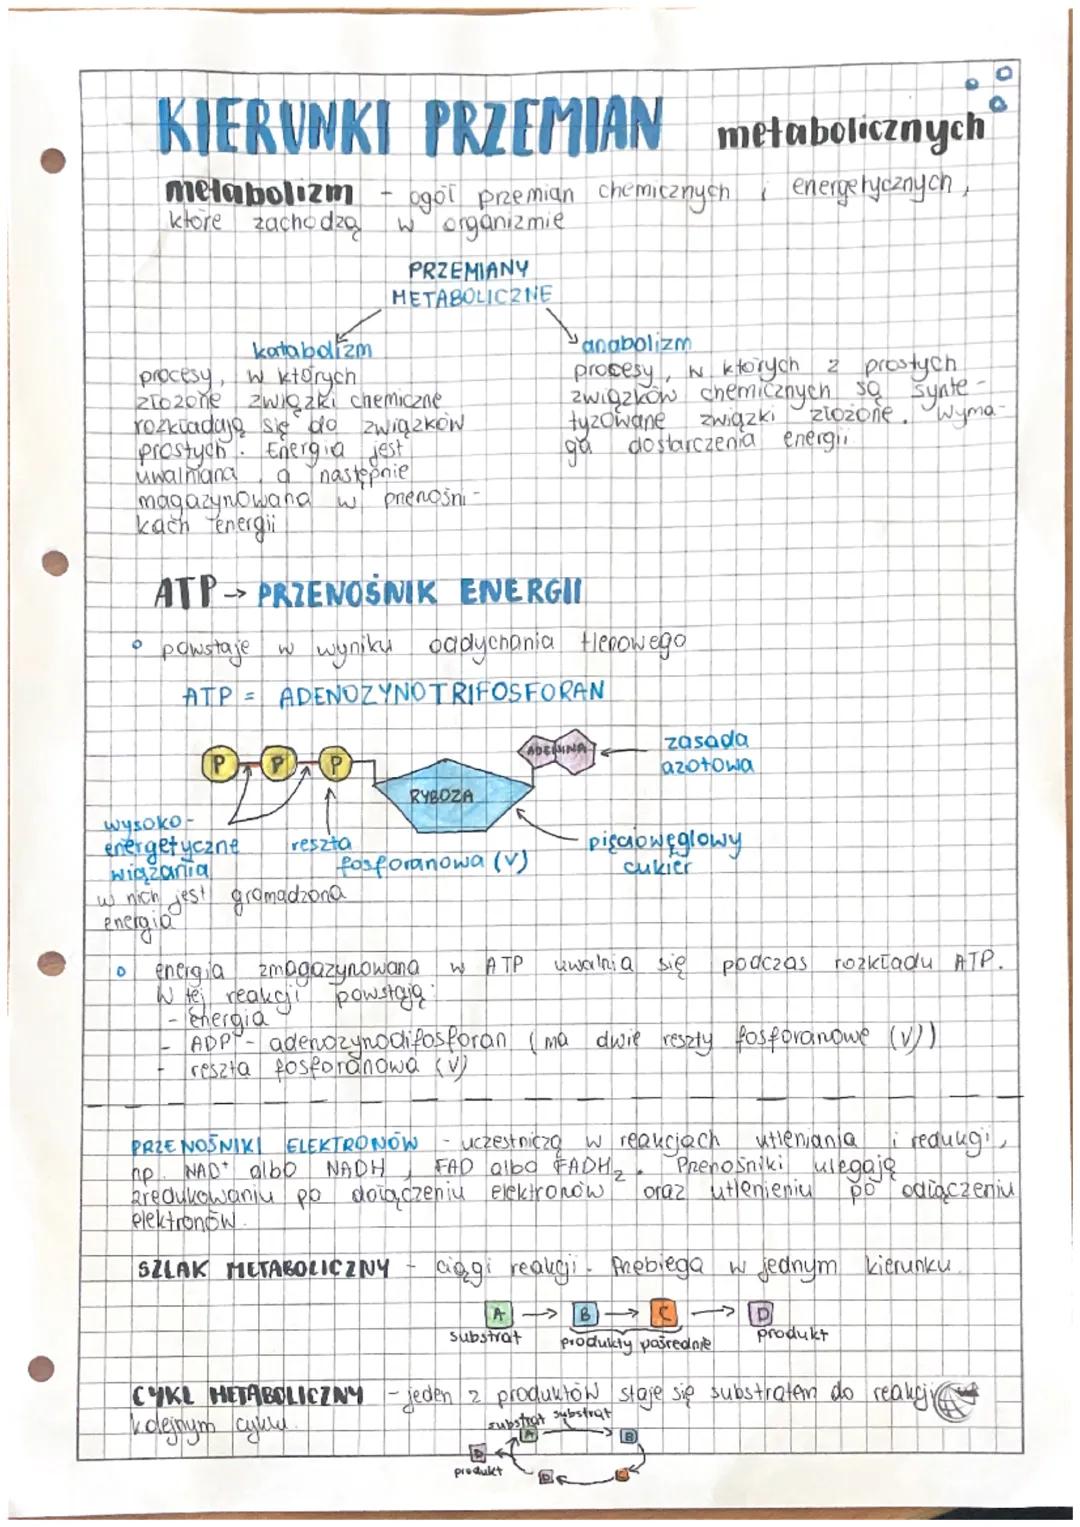 KIERUNKI PRZEMIAN metabolicznych
metabolizm - ogół przemian chemicznych i energetycznych,
które zachodzą w organizmie
PRZEMIANY
METABOLICZNE
katabolizm
procesy, w których
złożone związki chemiczne
rozkładają się do związków
prostych. Energia jest
uwalniana, a następnie
magazynowana w przenośni-
kach energii
anabolizm
procesy, w których z prostych
związków chemicznych są synte-
tyzowane związki złożone. Wyma-
ga dostarczenia energii
ATP → PRZENOŚNIK ENERGII
powstaje w wyniku oddychania tlenowego
ATP = ADENOZYNOTRIFOSFORAN
P P P
RYBOZA
ADENINA
zasada
azotowa
wysoko-
energetyczne
wiązania
w nich jest gromadzona
energia
reszta
fosforanowa (V)
pięciowęglowy
cukier
energia zmagazynowana w ATP uwalnia się podczas rozkładu ATP.
W tej reakcji powstają:
- energia
- ADP - adenozynodifosforan (ma dwie reszty fosforanowe (V))
- reszta fosforanowa (V)
PRZENOŚNIKI ELEKTRONÓW - uczestniczą w reakcjach utleniania i redukcji,
np. NAD⁺ albo NADH, FAD albo FADH₂. Przenośniki ulegają
zredukowaniu po dołączeniu elektronów oraz utlenieniu po odłączeniu
elektronów.
SZLAK METABOLICZNY - ciągi reakcji. Przebiega w jednym kierunku.
A → B → C → D
substrat produkty pośrednie produkt
CYKL METABOLICZNY - jeden z produktów staje się substratem do reakcji
kolejnym cyklu.
substrat substrat
A B
D
produkt
D C